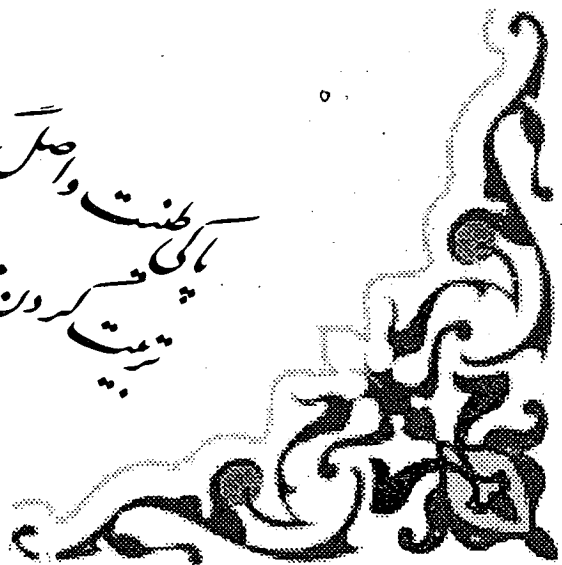 پاکی طینت و اصل
تربیت کردن